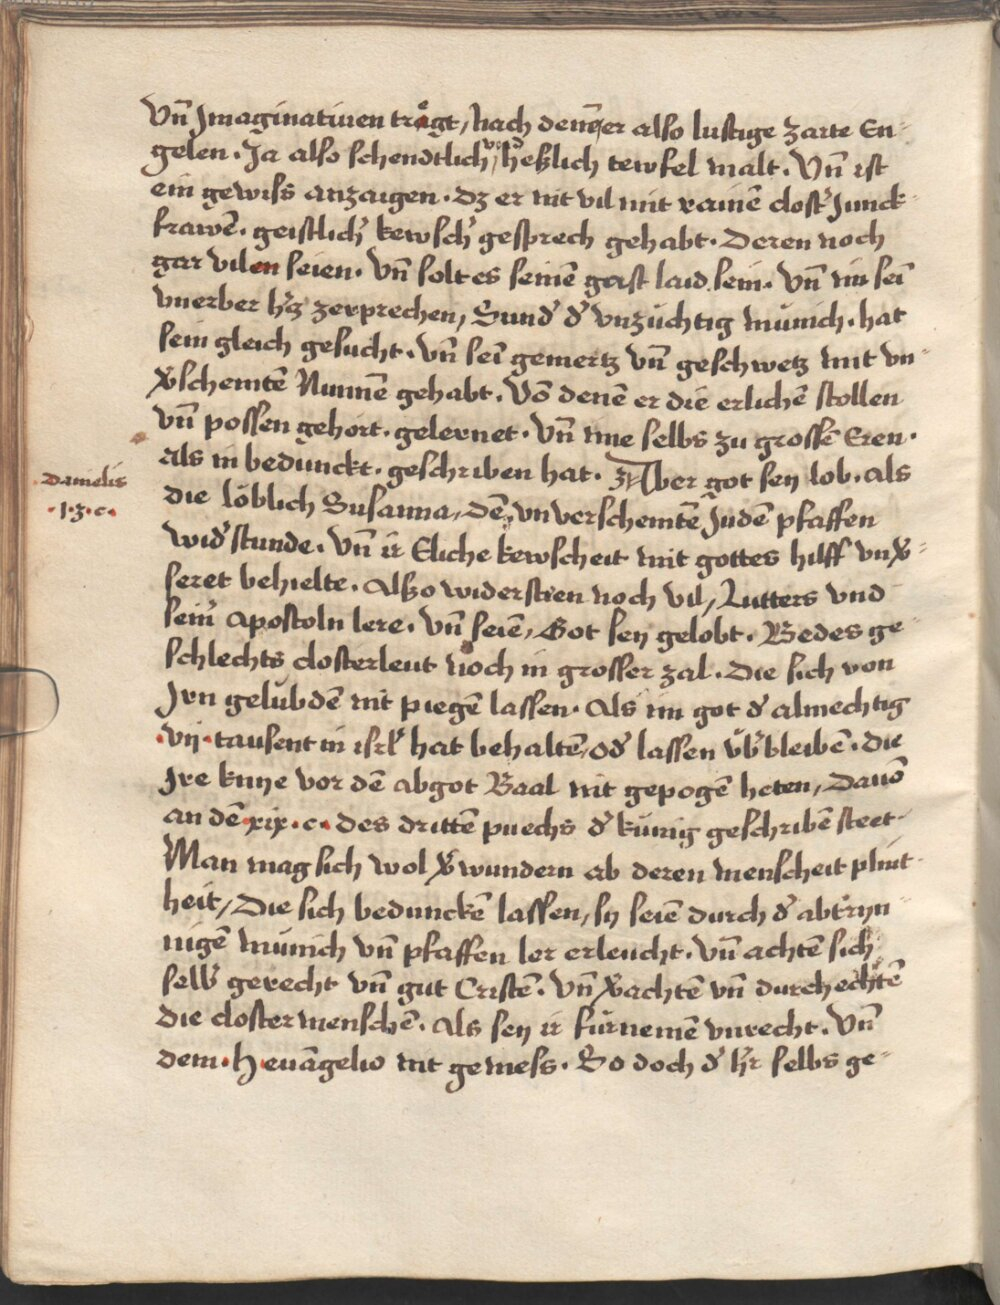 Vn̄ Jmaginatiuen trågt, nach denē er also lustige zarte En-
gelen. Ja also schendtlich, heßlich tewfel malt. Vn̄ ist
ein gewiss anzaigen. dz er nit vil mit rainē clost' Junck-
frawē. geistlich' kewsch' gesprech gehabt. Deren noch
gar vilen seien. vn̄ solt es seinē gast laid sein. vn̄ im sei
vnerber h'z zerprechen, Sund' d' vnzüchtig münich. hat
sein gleich gesucht. vn̄ sei gemertz vn̄ geschwetz mit vn-
v'schemtē Nunnē gehabt. Vō denē er die erlichē stollen
vn̄ possen gehört. gelernet. vn̄ nue selbs zu grossē Eren.
als in bedunckt. geschriben hat. Aber got sey lob. als
Danielis
.13.c.
die löblich Susanna, den vnverschemtē Judē pfaffen
wid'stunde. vn̄ ir Eliche kewscheit mit gottes hilff vnv'-
seret behielte. Alßo widersteen noch vil, Lutters vnd
sein' apostoln lere. vn̄ seiē, Got sey gelobt. Bedes ge-
schlechts closterleut noch in grosser zal. die sich von
Jrn gelübdē nit piegē lassen. Als im got d' almechtig
.vij. tausent in isrl' hat behaltē, od' lassen üb'bleibē. die
Jre knye vor dē abgot Baal nit gepogē heten, Dauō
an dē .xix. c. des drittē puechs d' künig geschribē steet.
Man mag sich wol v'wundern ab deren menscheit plint-
heit, Die sich beduncken lassen, sy seiē durch d' abtryn-
nigē münich vn̄ pfaffen ler erleucht. vn̄ achtē sich
selb' gerecht vn̄ gut Cristē. vn̄ v'achtē vn̄ durchechtē
die closter menschē. als sey ir fürnemē vnrecht. vn̄
dem .h. euāgelio nit gemess. So doch d' h'r selbs ge-